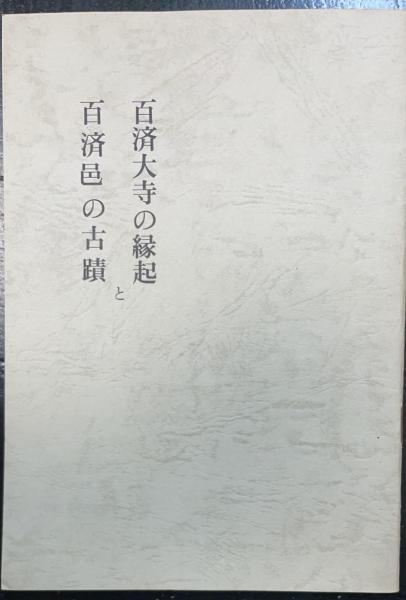 百済大寺の縁起
と
百済邑の古蹟